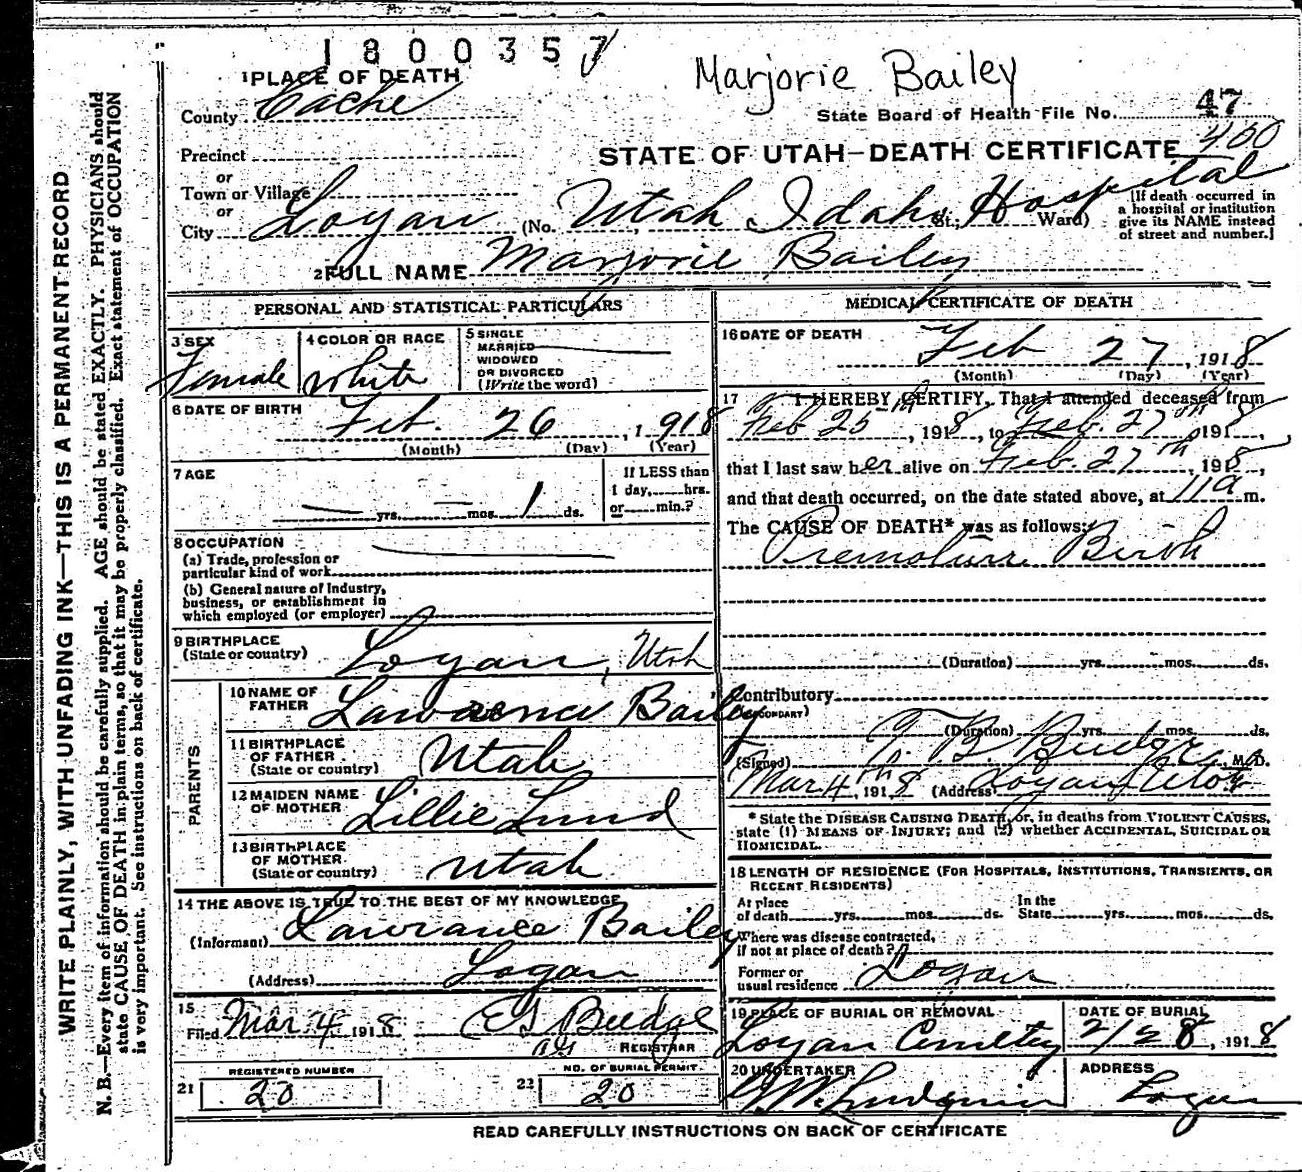 1800357
Marjorie Bailey
1 PLACE OF DEATH
County Cache
State Board of Health File No. 47
Precinct
400
or
STATE OF UTAH—DEATH CERTIFICATE
Town or Village
or
City Logan (No. Utah Idaho St.; Hospital Ward)
[If death occurred in
a hospital or institution
give its NAME instead
of street and number.]
2 FULL NAME Marjorie Bailey
PERSONAL AND STATISTICAL PARTICULARS
3 SEX
Female
4 COLOR OR RACE
white
5 SINGLE
MARRIED
WIDOWED
OR DIVORCED
(Write the word)
6 DATE OF BIRTH
Feb. 26, 1918
(Month) (Day) (Year)
7 AGE
yrs. mos. 1 ds.
If LESS than
1 day, hrs.
or min.?
8 OCCUPATION
(a) Trade, profession or
particular kind of work
(b) General nature of industry,
business, or establishment in
which employed (or employer)
9 BIRTHPLACE
(State or country) Logan, Utah
PARENTS
10 NAME OF
FATHER Lawrence Bailey
11 BIRTHPLACE
OF FATHER
(State or country) Utah
12 MAIDEN NAME
OF MOTHER Lillie Lund
13 BIRTHPLACE
OF MOTHER
(State or country) Utah
14 THE ABOVE IS TRUE TO THE BEST OF MY KNOWLEDGE
(Informant) Lawrance Bailey
(Address) Logan
15
Filed Mar 4, 1918
REGISTRAR
21 REGISTERED NUMBER
20
22 NO. OF BURIAL PERMIT
20
MEDICAL CERTIFICATE OF DEATH
16 DATE OF DEATH
Feb 27, 1918
(Month) (Day) (Year)
17 I HEREBY CERTIFY, That I attended deceased from
Feb 25th, 1918, to Feb. 27th, 1918,
that I last saw her alive on Feb. 27th, 1918,
and that death occurred, on the date stated above, at 11 a m.
The CAUSE OF DEATH* was as follows:
Premature Birth
(Duration) yrs. mos. ds.
Contributory
(SECONDARY)
(Duration) yrs. mos. ds.
(Signed) T. B. Budge, M.D.
Mar 4th, 1918 (Address) Logan Utah
* State the DISEASE CAUSING DEATH, or, in deaths from VIOLENT CAUSES,
state (1) MEANS OF INJURY; and (2) whether ACCIDENTAL, SUICIDAL OR
HOMICIDAL.
18 LENGTH OF RESIDENCE (FOR HOSPITALS, INSTITUTIONS, TRANSIENTS, OR
RECENT RESIDENTS)
At place
of death yrs. mos. ds.
In the
State yrs. mos. ds.
Where was disease contracted,
if not at place of death?
Former or
usual residence Logan
19 PLACE OF BURIAL OR REMOVAL
Logan Cemetery
DATE OF BURIAL
2/28, 1918
20 UNDERTAKER
ADDRESS
Logan
READ CAREFULLY INSTRUCTIONS ON BACK OF CERTIFICATE
WRITE PLAINLY, WITH UNFADING INK—THIS IS A PERMANENT RECORD
N. B.—Every item of information should be carefully supplied. AGE should be stated EXACTLY. PHYSICIANS should
state CAUSE OF DEATH in plain terms, so that it may be properly classified. Exact statement of OCCUPATION
is very important. See instructions on back of certificate.